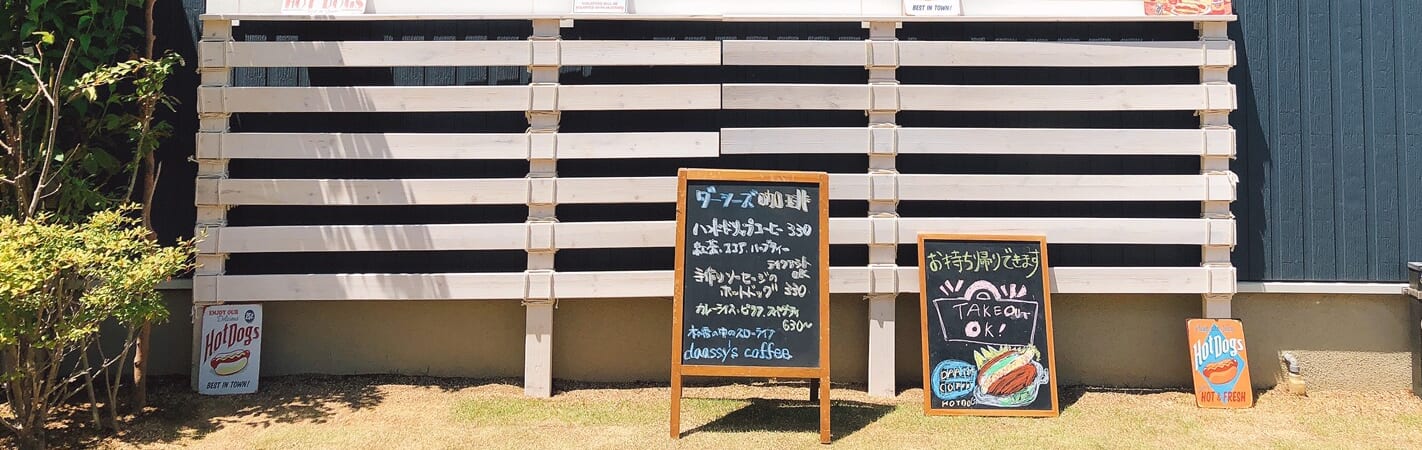 HOT DOGS
BEST IN TOWN!
ダーシーズ珈琲
ハンドドリップコーヒー 330
紅茶、ココア、ハーブティー
テイクアウト
OK
手作りソーセージの
ホットドッグ 330
カレーライス・ピラフ、スパゲティ
630〜
木香の中のスローライフ
daassy's coffee
お持ち帰りできます
TAKEOUT
OK!
HOTDOG
ENJOY OUR
Delicious
HOTDOGS
BEST IN TOWN!
HOTDOGS
HOT & FRESH